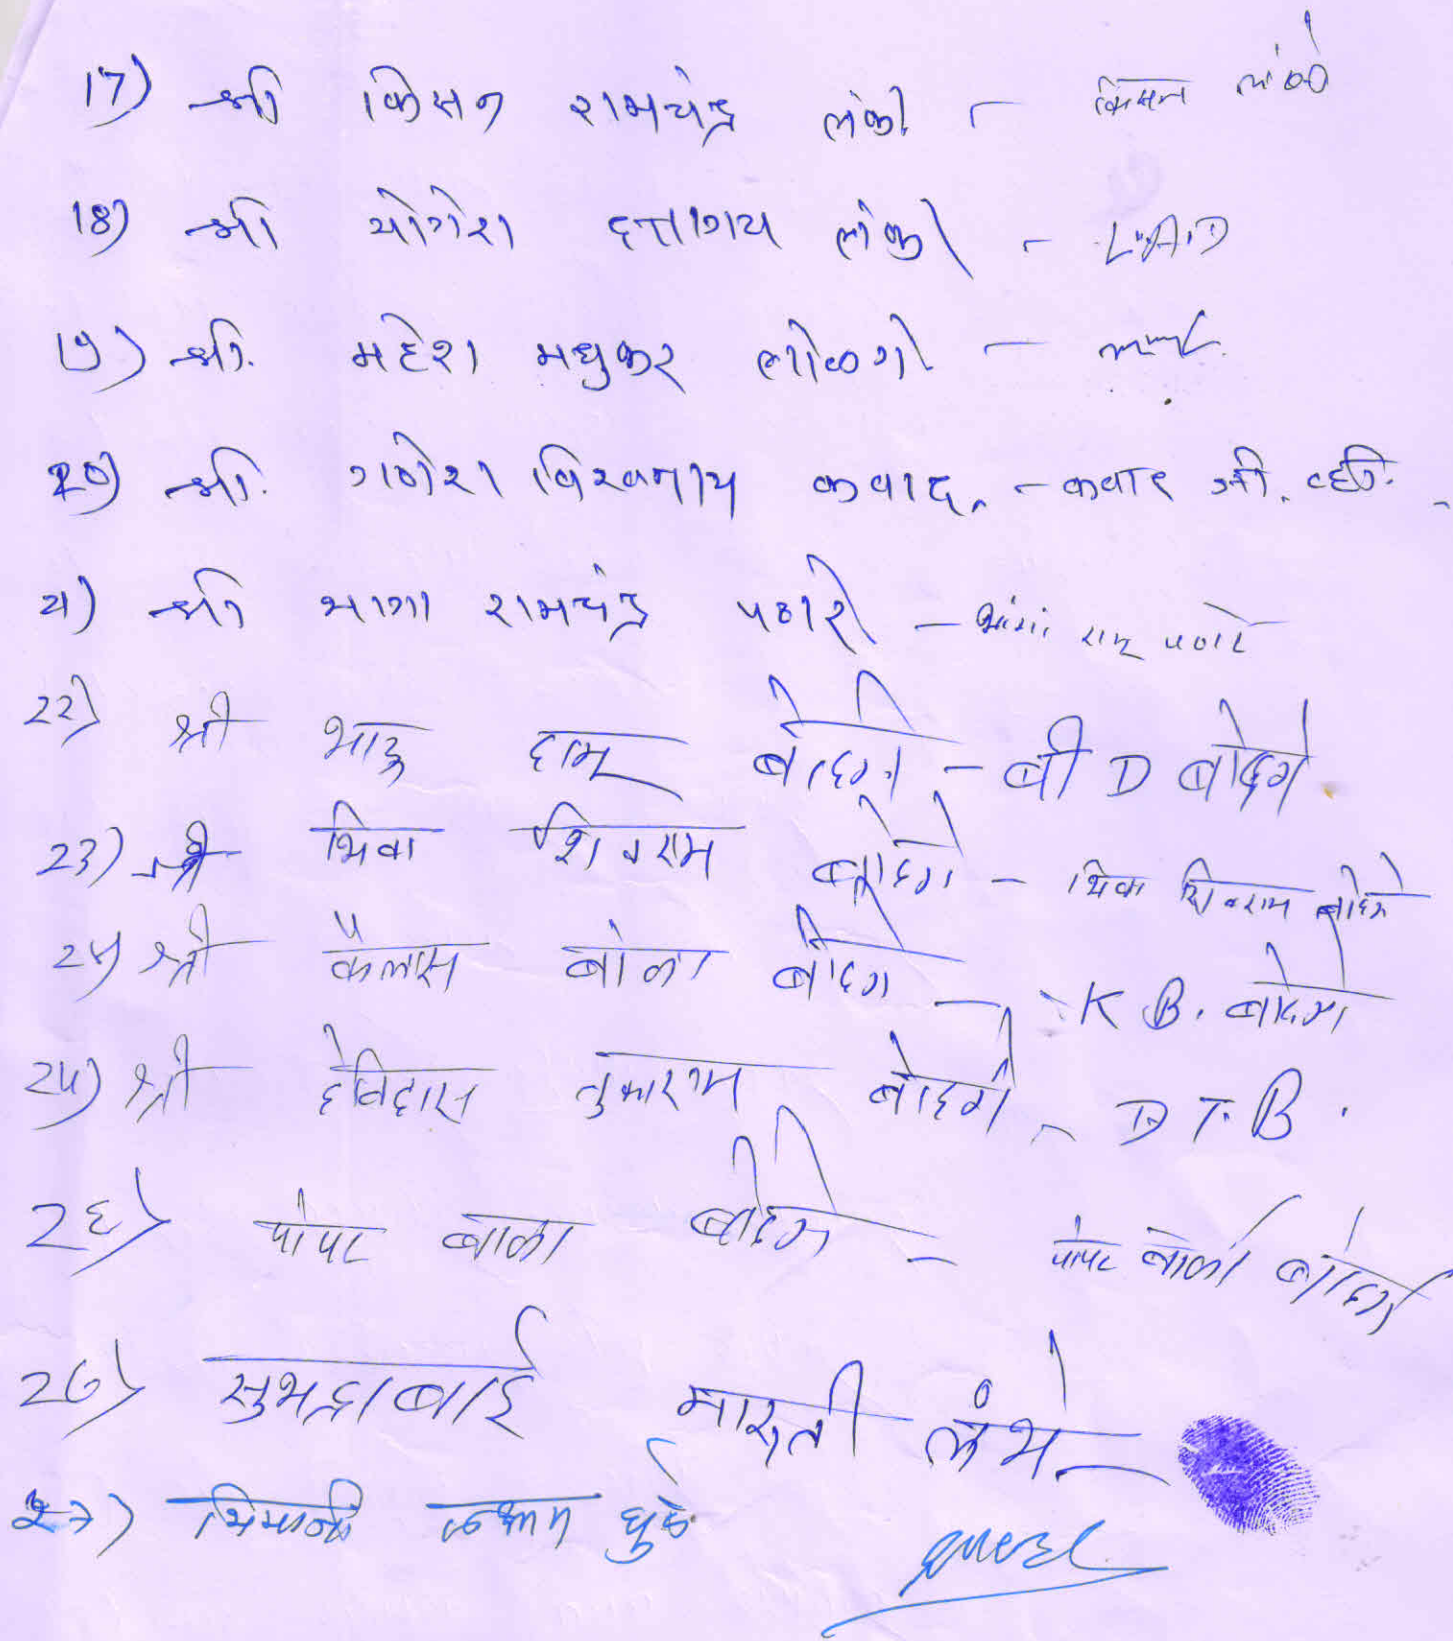 17) श्री किसन रामचंद्र लंके - किसन लंके
18) श्री योगेश दत्तात्रय लंके - L.A.D
श्री. महेश मधुकर लोळगे -
20) श्री. गणेश विश्वनाथ कवाद. - कवाद जी. व्ही.
२१) श्री भागा रामचंद्र पठारे - भागा रामचंद्र पठारे
22) श्री भाऊ दामू बोदगे - बी D बोदगे.
23) श्री भिवा शिवराम बोदगे - भिवा शिवराम बोदगे
2४) श्री कैलास बाळा बोदगे - K B. बोदगे
2५) श्री देविदास तुकाराम बोदगे - D T. B.
2६) पोपट बाळा बोदगे - पोपट बाळा बोदगे
2७) सुभद्राबाई मारुती लंभे -
लक्ष्मण